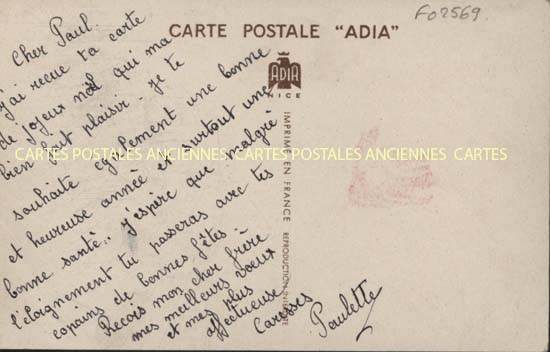 F02569.
CARTE POSTALE "ADIA"
ADIA
NICE
IMPRIMÉ EN FRANCE
REPRODUCTION INTERDITE
Cher Paul.
j'ai recue ta carte
de joyeux nöel qui ma
bien fait plaisir. Je te
souhaite egalement une bonne
et heureuse année et surtout une
bonne santé.. j'espère que malgré
l'éloignement tu passeras avec tes
copains de bonnes fêtes :
Recois mon cher frère
mes meilleurs voeux
et mes plus
affectueuse
Caresses
Paulette
CARTES POSTALES ANCIENNES CARTES POSTALES ANCIENNES CARTES